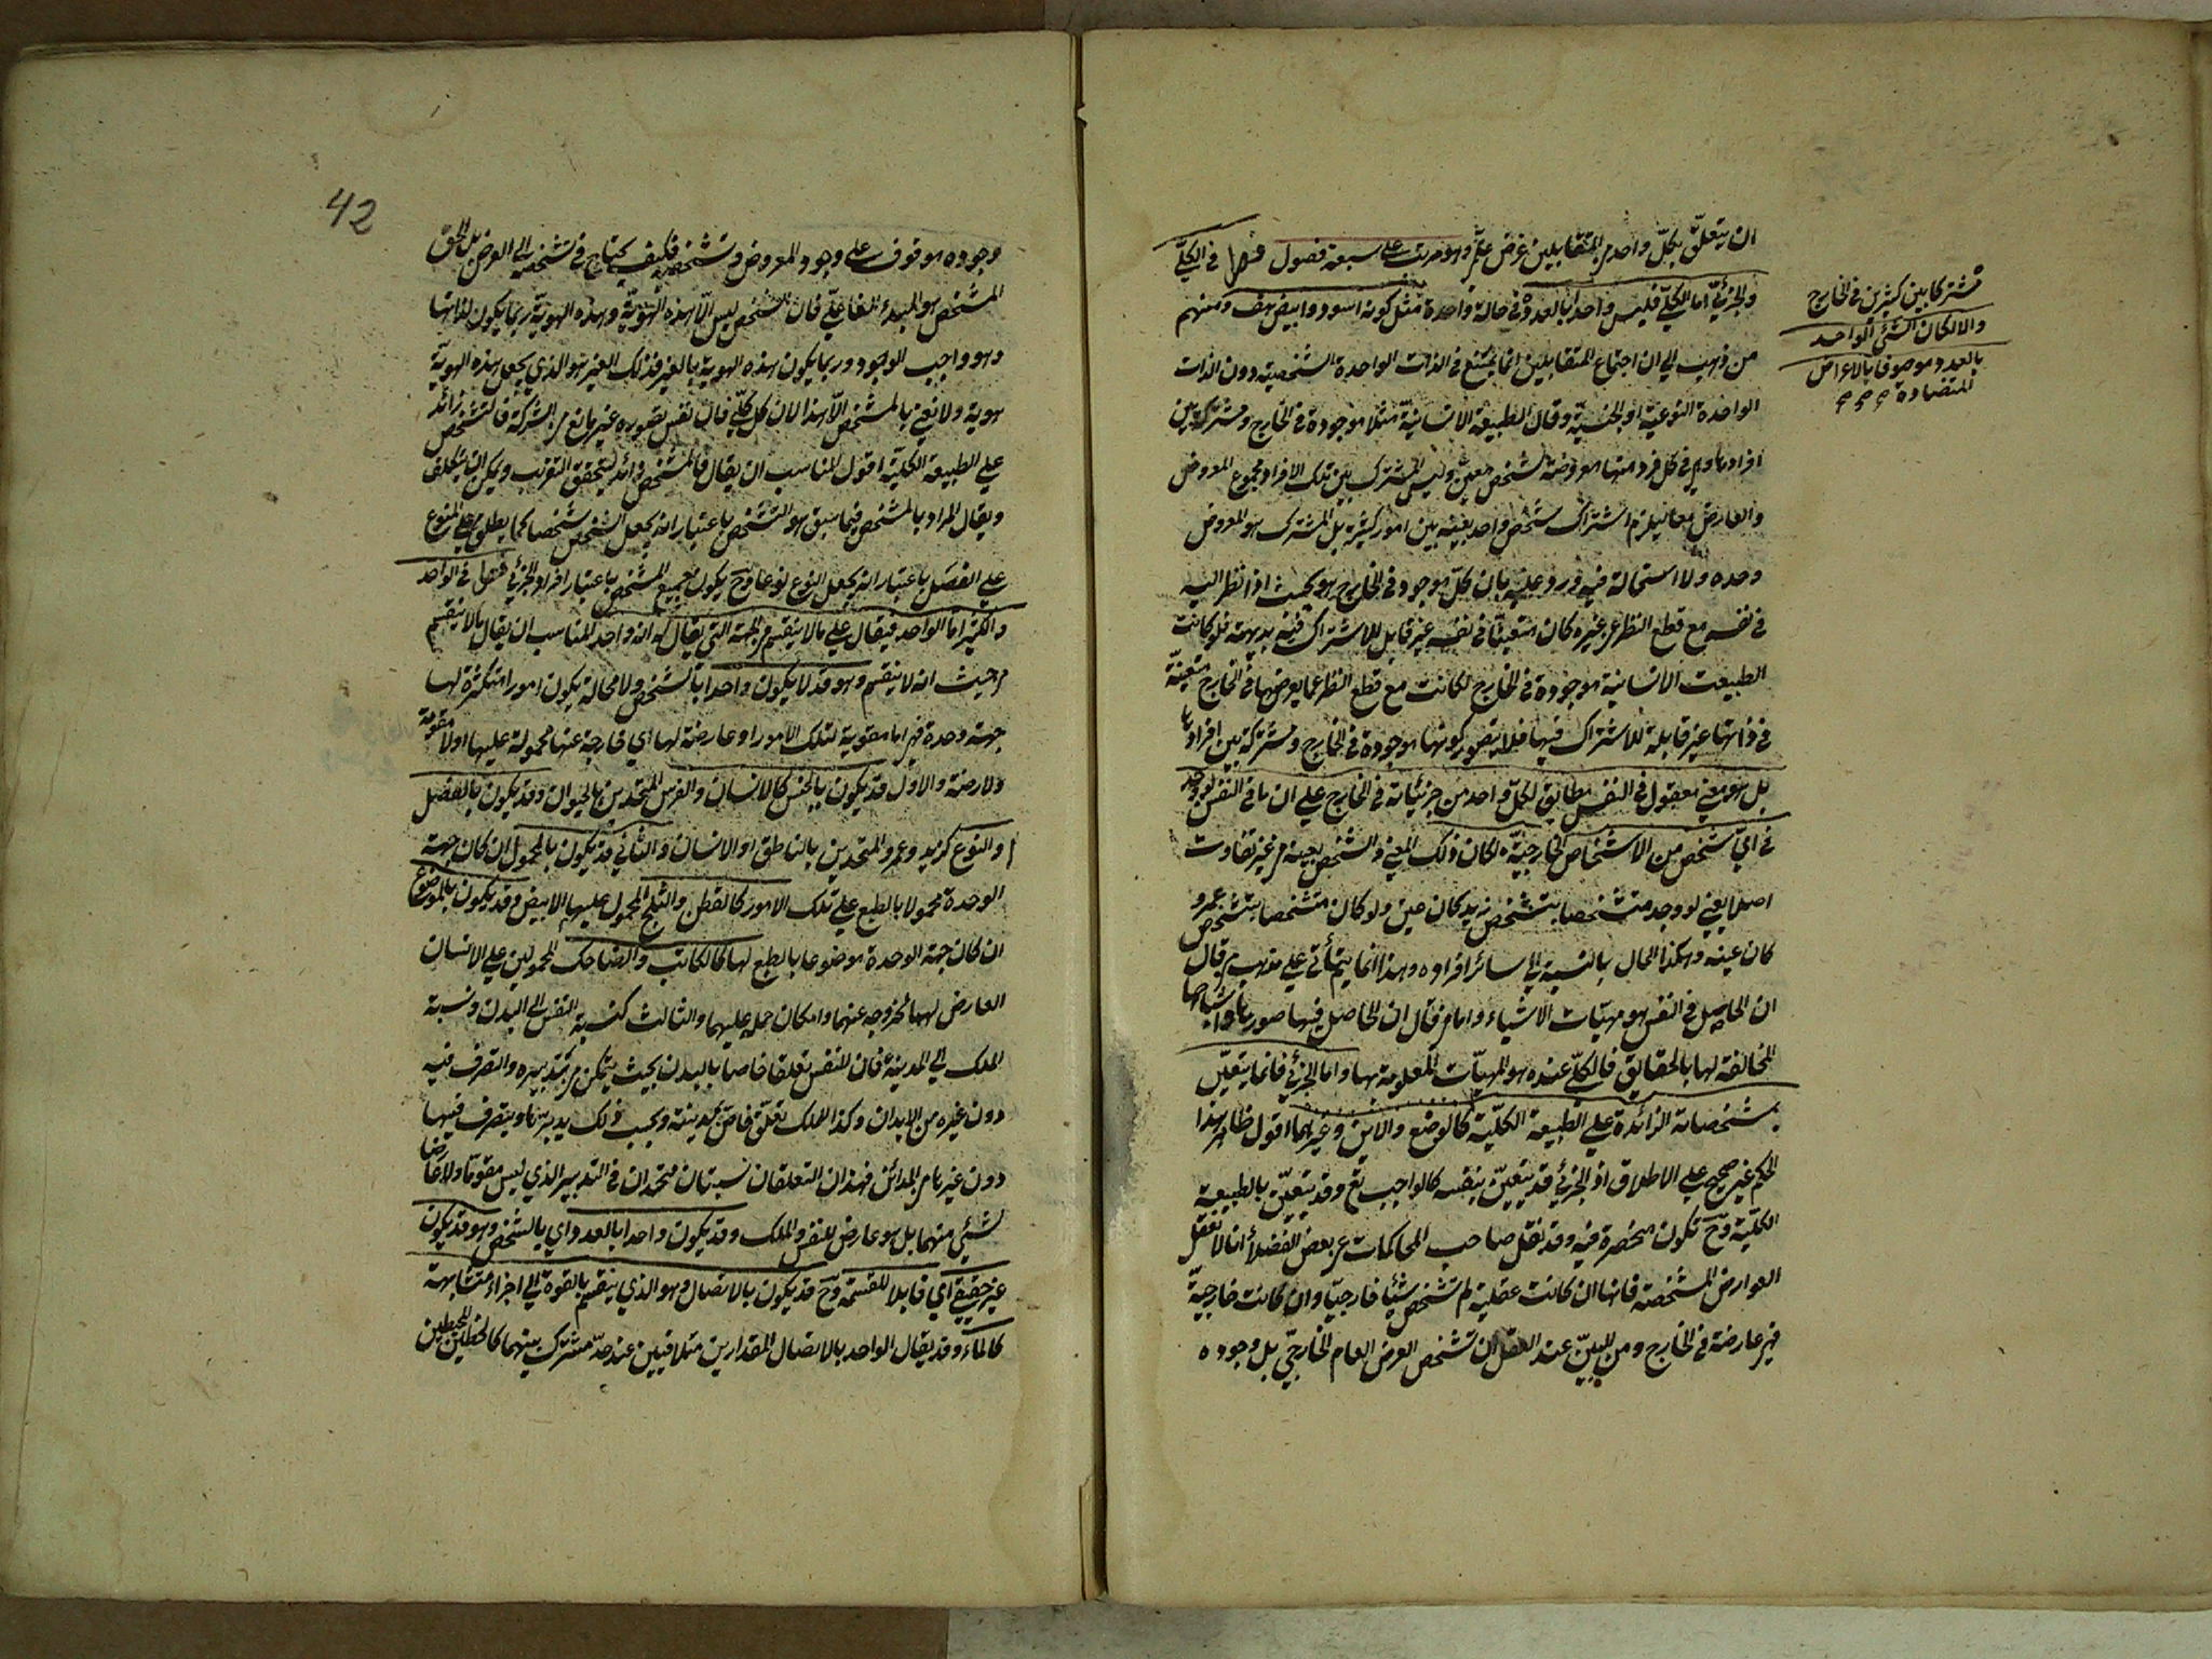 ان يتعلق بكل واحد من المتقابلين غرض علمي وهو مرتب على سبعة فصول فصل في الكلي
والجزئي اما الكلي فليس واحدا بالعدد في حالة واحدة مثل كونه اسود وابيض هف ومنهم
من ذهب الى ان اجتماع المتقابلين انما يمتنع في الذات الواحدة الشخصية دون الذات
الواحدة النوعية او الجنسية وقال الطبيعة الانسانية مثلا موجودة في الخارج ومشتركة بين
افرادها وهي في كل فرد منها معروضة لتشخص معين وليس المشترك بين تلك الافراد مجموع المعروض
والعارض معا ليلزم اشتراك شخص واحد بعينه بين امور كثيرة بل المشترك هو المعروض
وحده ولا استحالة فيه ورد عليه بان كل موجود في الخارج هو بحيث اذا نظر اليه
في نفسه مع قطع النظر عن غيره كان متعينا في نفسه غير قابل للاشتراك فيه بديهة فلو كانت
الطبيعت الانسانية موجودة في الخارج لكانت مع قطع النظر عما يعرضها في الخارج متعينة
في ذاتها غير قابلة للاشتراك فيها فلا يتصور كونها موجودة في الخارج ومشتركة بين افرادها
بل هو معنى معقول في النفس مطابق لكل واحد من جزئياته في الخارج على ان ما في النفس لو وجد
في اي شخص من الاشخاص الخارجية لكان ذلك المعنى ذلك الشخص بعينه من غير تفاوت
اصلا يعني لو وجد متشخصا بتشخص زيد كان عين ولو كان متشخصا بتشخص عمرو
كان عينه وهكذا الحال بالنسبة الى سائر افراده وهذا انما يتأتى على مذهب من قال
ان الحاصل في النفس هو مهيات الاشياء واما من قال ان الحاصل فيها صورها واشباحها
المخالفة لها بالحقايق فالكلي عنده هو المهيات المعلومة بها واما الجزئي فانما يتعين
بمشخصاته الزائدة على الطبيعة الكلية كالوضع والاين وغيرهما اقول ظاهر هذا
الحكم غير صحيح على الاطلاق اذ الجزئي قد يتعين بنفسه كالواجب تع وقد يتعين بالطبيعة
الكلية وح تكون منحصرة فيه وقد نقل صاحب المحاكمات عن بعض الفضلاء انا لا نعقل
العوارض المشخصة فانها ان كانت عقلية لم تشخص شيئا خارجيا وان كانت خارجية
فهي عارضة في الخارج ومن البين عند العقل ان تشخص العرض العام الخارجي بل وجوده
مشتركا بين كثيرين في الخارج
والا لكان الشئ الواحد
بالعدد موصوفا بالاعراض
المتضادة
42
وجوده موقوف على وجود المعروض وتشخصه فكيف يحتاج في تشخصه الى العرض بل الحق
المشخص هو المبدء الفاعلي فان الشخص ليس الا هذه الهوية وهذه الهوية ربما يكون لذاتها
وهو واجب الوجود وربما يكون هذه الهوية بالغير فذلك الغير هو الذي يجعل هذه الهوية
هوية ولا نعني بالمشخص الا هذا لان كل كلي فان نفس تصوره غير مانع من الشركة فالتشخص زائد
على الطبيعة الكلية اقول المناسب ان يقال فالمشخص زائد ليتحقق التقريب ويمكن ان يتكلف
ويقال المراد بالمشخص فيما سبق هو التشخص باعتبار انه يجعل الشخص شخصا كما يطلق المنوع
على الفصل باعتبار انه يجعل النوع نوعا وح يكون جميع المشخص باعتبار افراد الجزئي فصل في الواحد
والكثير اما الواحد فيقال على ما لا ينقسم من الجهة التي يقال له انه واحد المناسب ان يقال ما لا ينقسم
من حيث انه لا ينقسم وهو قد لا يكون واحدا بالشخص ولا محالة يكون امورا متكثرة لها
جهة وحدة فهي اما مقومة لتلك الامور او عارضة لها اي خارجة عنها محمولة عليها اولا مقومة
ولا عارضة والاول قد يكون بالجنس كالانسان والفرس المتحدين بالحيوان وقد يكون بالفصل
او النوع كزيد وعمرو المتحدين بالناطق او الانسان والثاني قد يكون بالمحمول ان كان جهة
الوحدة محمولا بالطبع على تلك الامور كالقطن والثلج المحمول عليهما الابيض وقد يكون بالموضوع
ان كان جهة الوحدة موضوعا بالطبع لها كالكاتب والضاحك المحمولين على الانسان
العارض لهما لخروجه عنهما وامكان حمله عليهما والثالث كنسبة النفس الى البدن ونسبة
الملك الى المدينة فان للنفس تعلقا خاصا بالبدن بحيث يتمكن من تدبيره والتصرف فيه
دون غيره من الابدان وكذا للملك تعلق خاص بمدينة وبحسب ذلك يدبرها ويتصرف فيها
دون غيرها من المدائن فهذان التعلقان نسبتان متحدان في التدبير الذي ليس مقوما ولا عارضا
لشئ منهما بل هو عارض للنفس والملك وقد يكون واحدا بالعدد واي بالشخص وهو قد يكون
غير حقيقي اي قابلا للقسمة وح قد يكون بالاتصال وهو الذي ينقسم بالقوة الى اجزاء متشابهة
كالماء وقد يقال الواحد بالاتصال لمقدارين متلاقيين عند حد مشترك بينهما كالخطين المحيطين